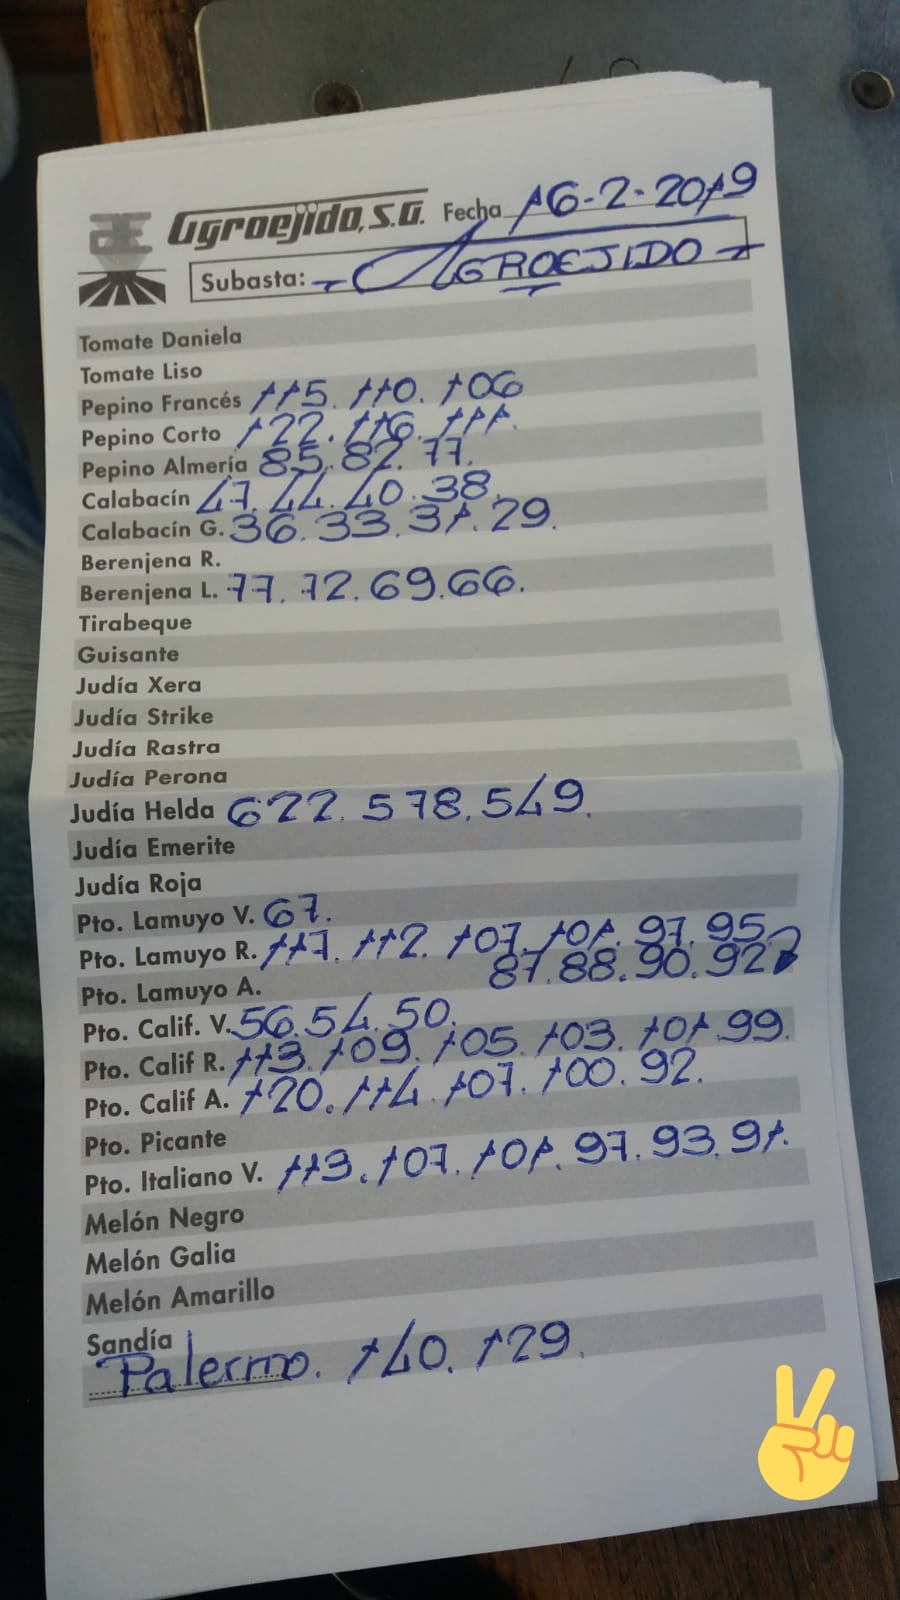 Agroejido, S.A. Fecha 16-2-2019
Subasta: - AGROEJIDO -
Tomate Daniela
Tomate Liso
Pepino Francés 115. 110. 106
Pepino Corto 122. 116. 111.
Pepino Almería 85. 82. 77.
Calabacín 47. 44. 40. 38.
Calabacín G. 36. 33. 31. 29.
Berenjena R.
Berenjena L. 77. 72. 69. 66.
Tirabeque
Guisante
Judía Xera
Judía Strike
Judía Rastra
Judía Perona
Judía Helda 622. 578. 549.
Judía Emerite
Judía Roja
Pto. Lamuyo V. 67.
Pto. Lamuyo R. 117. 112. 107. 101. 97. 95.
87. 88. 90. 92
Pto. Lamuyo A.
Pto. Calif. V. 56. 54. 50.
Pto. Calif R. 113. 109. 105. 103. 101. 99.
Pto. Calif A. 120. 114. 107. 100. 92.
Pto. Picante
Pto. Italiano V. 113. 107. 101. 97. 93. 91.
Melón Negro
Melón Galia
Melón Amarillo
Sandía
Palermo. 140. 129.